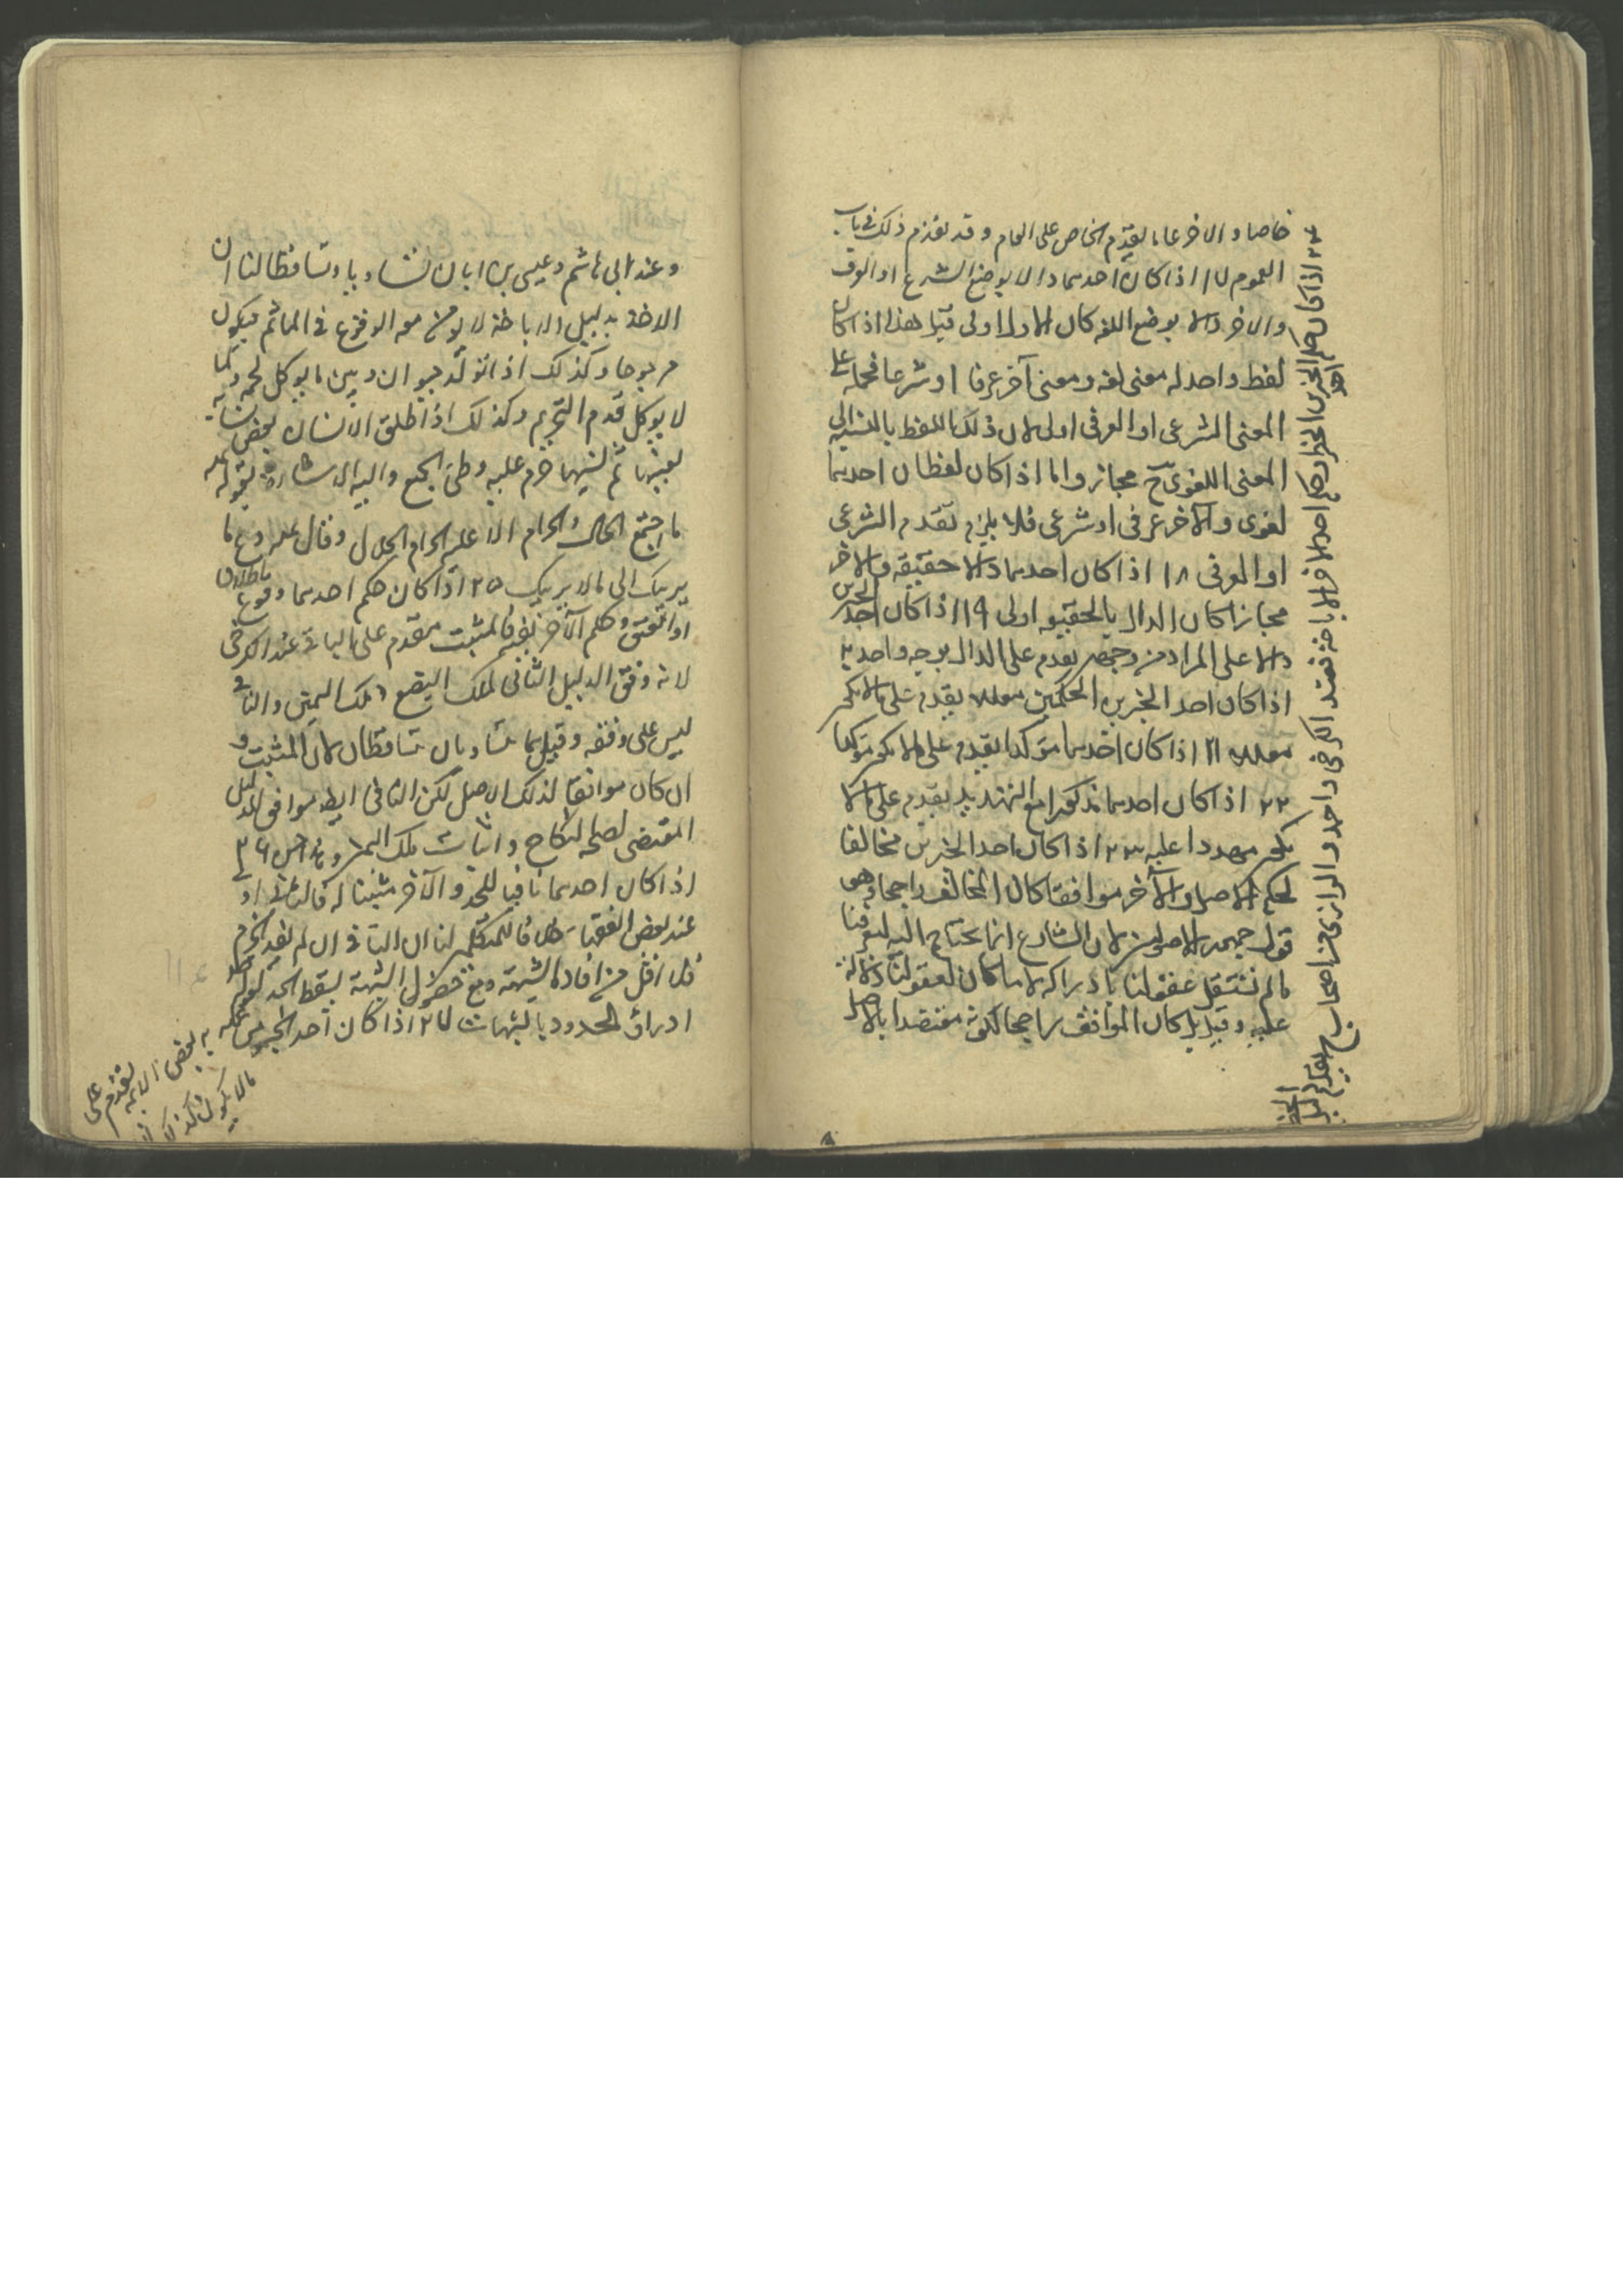 خاصا والاخر عاما يقدم الخاص على العام وقد تقدم ذلك في باب
العموم ١٧ اذا كان احدهما دالا بوضع الشرع او العرف
والاخر دالا بوضع اللغة كان الاول اولى قيل هذا اذا كان
لفظ واحد له معنى لغة ومعنى آخر عرفا او شرعا فحمله على
المعنى الشرعي او العرفي اولى لان ذلك اللفظ بالنسبة الى
المعنى اللغوي ح مجاز واما اذا كان لفظان احدهما
لغوي والاخر عرفي او شرعي فلا يلزم تقدم الشرعي
او العرفي ١٨ اذا كان احدهما دالا حقيقة والاخر
مجازا كان الدال بالحقيقة اولى ١٩ اذا كان احد الخبرين
دالا على المراد من وجهين يقدم على الدال بوجه واحد ٢٠
اذا كان احد الخبرين الحكمين معللا يقدم على ما لا يكون
معللا ٢١ اذا كان احدهما مؤكدا يقدم على ما لا يكون مؤكدا
٢٢ اذا كان احدهما مذكورا مع التهديد يقدم على ما لا
يكون مهددا عليه ٢٣ اذا كان احد الخبرين مخالفا
لحكم الاصل والآخر موافقا كان المخالف راجحا وهو
قول جمهور الاصوليين لان الشارع انما يحتاج اليه لتعرفنا
ما لم تستقل عقولنا بادراكه لا ما كان لعقولنا دلالة
عليه وقيل بل كان الموافق راجحا لكونه معتضدا بالاصل
٢٤ اذا كان حكم احد الخبرين الحظر وحكم الاخر الاباحة فعند الكرخي واحمد والرازي من اصحاب ح يقدم الخبر
وعند ابي هاشم وعيسى بن ابان تساويا وتساقطا لنا ان
الاخذ بدليل الاباحة لا يؤمن معه الوقوع في المآثم فيكون
مرجوحا وكذلك اذا تولد حيوان بين ما يوكل لحمه وما
لا يوكل قدم التحريم وكذلك اذا طلق الانسان بعض نسائه
بعينها ثم نسيها حرم عليه وطئ الجميع واليه الاشارة بقوله عليه
ما اجتمع الحلال والحرام الا غلب الحرام الحلال وقال عليه دع ما
يريبك الى ما لا يريبك ٢٥ اذا كان حكم احدهما وقوع طلاق
او العتق وحكم الآخر نفيه فالمثبت مقدم على النافي عند الكرخي
لانه وفق الدليل النافي لملك البضع وملك اليمين والنافي
ليس على وفقه وقيل هما يتساويان يتساقطان لان المثبت و
ان كان موافقا لذلك الاصل لكن النافي ايضا موافق الدليل
المقتضي لصحة النكاح واثبات ملك اليمين ٢٦
اذا كان احدهما نافيا للحد والآخر مثبتا له فالنافي اولى
عند بعض الفقهاء خلافا للمتكلمين لنا ان النافي ان لم يفد الجزم
فلا اقل من افادة الشبهة ومع حصول الشبهة يسقط الحد لقوله
ادرأوا الحدود بالشبهات ٢٧ اذا كان احد الخبرين
عمل به بعض الائمة يقدم على
ما لا يكون كذلك